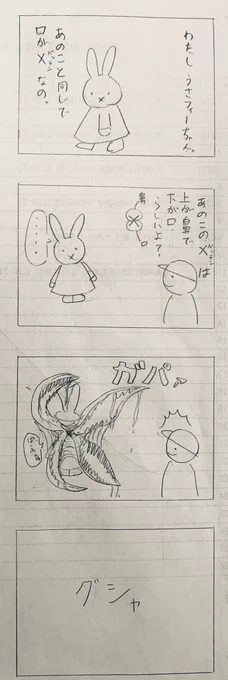 わたし うさフィーちゃん。
あのこと同じで
口が×なの。
バッテン
あのこの×は
バッテン
上が鼻で
下が口
らしいよ？
鼻
口
・・・・・
ガパァ
グシャ